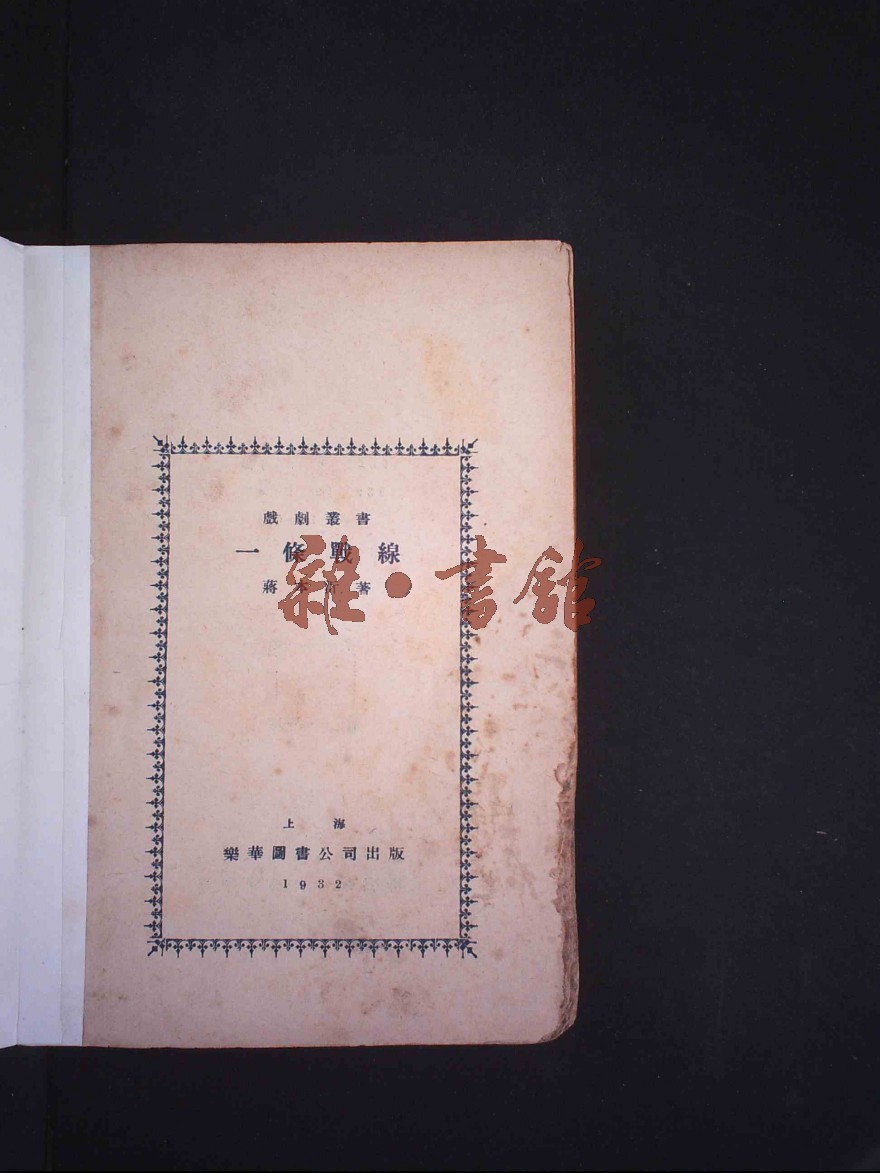 戲劇叢書
一條戰線
蔣本沂著
雜·書館
上海
樂華圖書公司出版
1932